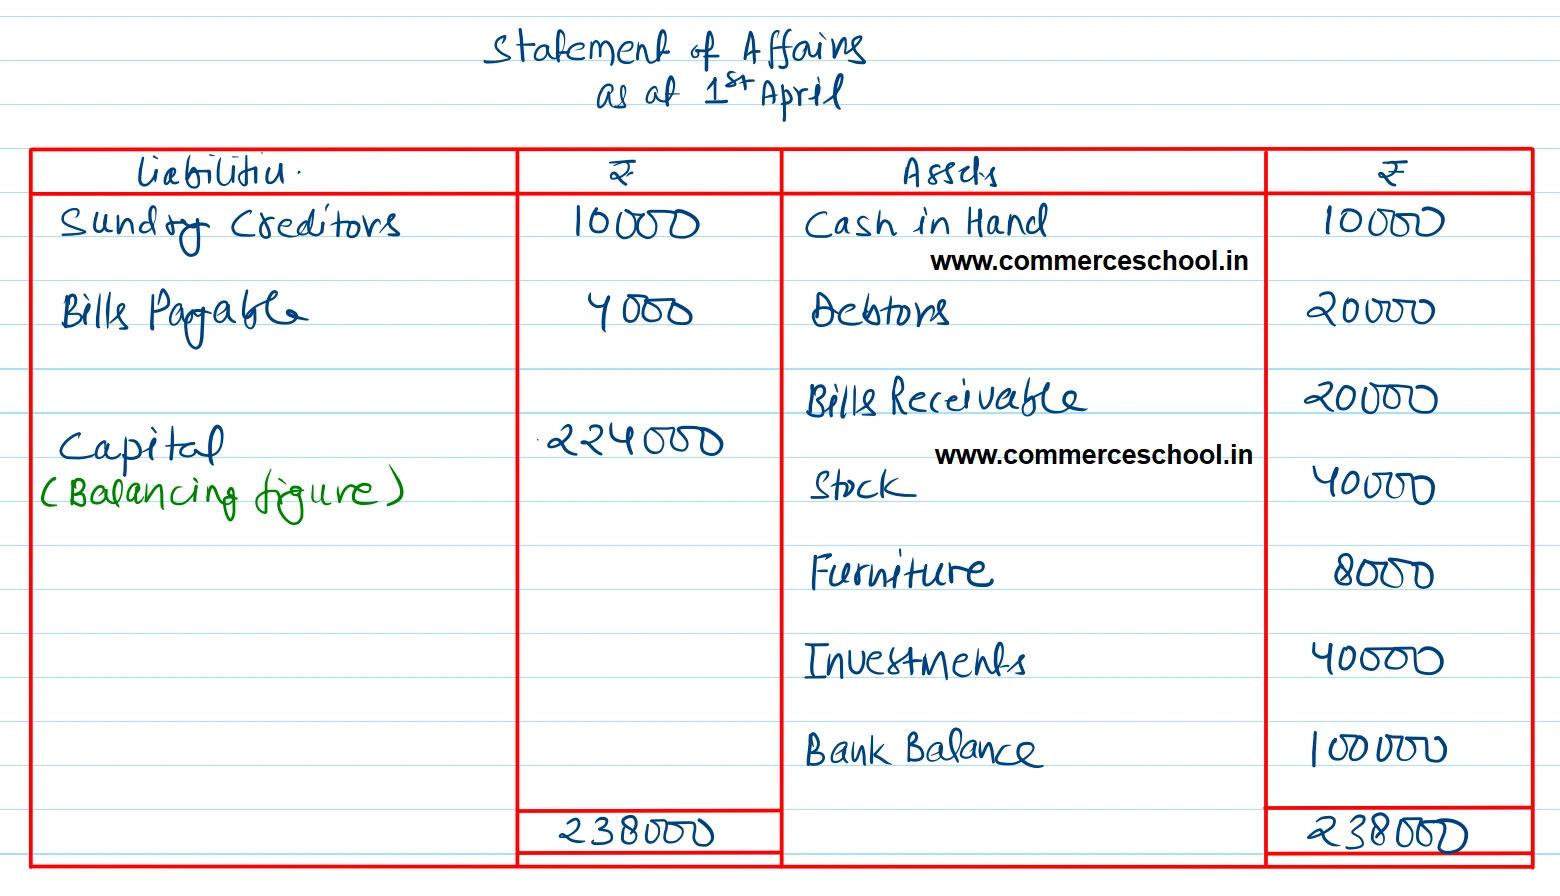 Statement of Affairs
as at 1st April
Liabilities. ₹ Assets ₹
Sundry Creditors 10000 Cash in Hand 10000
www.commerceschool.in
Bills Payable 4000 Debtors 20000
Bills Receivable 20000
Capital 224000
www.commerceschool.in
(Balancing figure) Stock 40000
Furniture 8000
Investments 40000
Bank Balance 100000
238000 238000